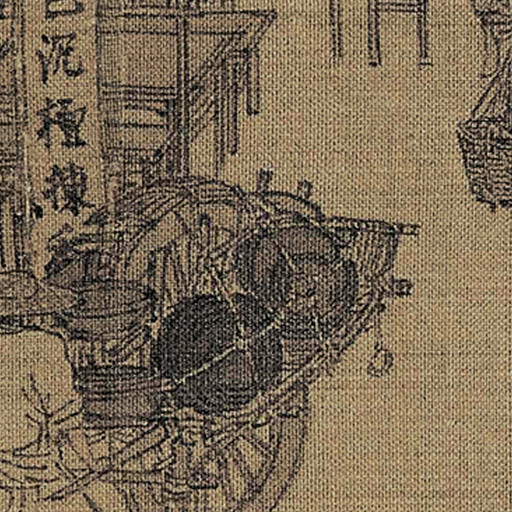 沉檀揀